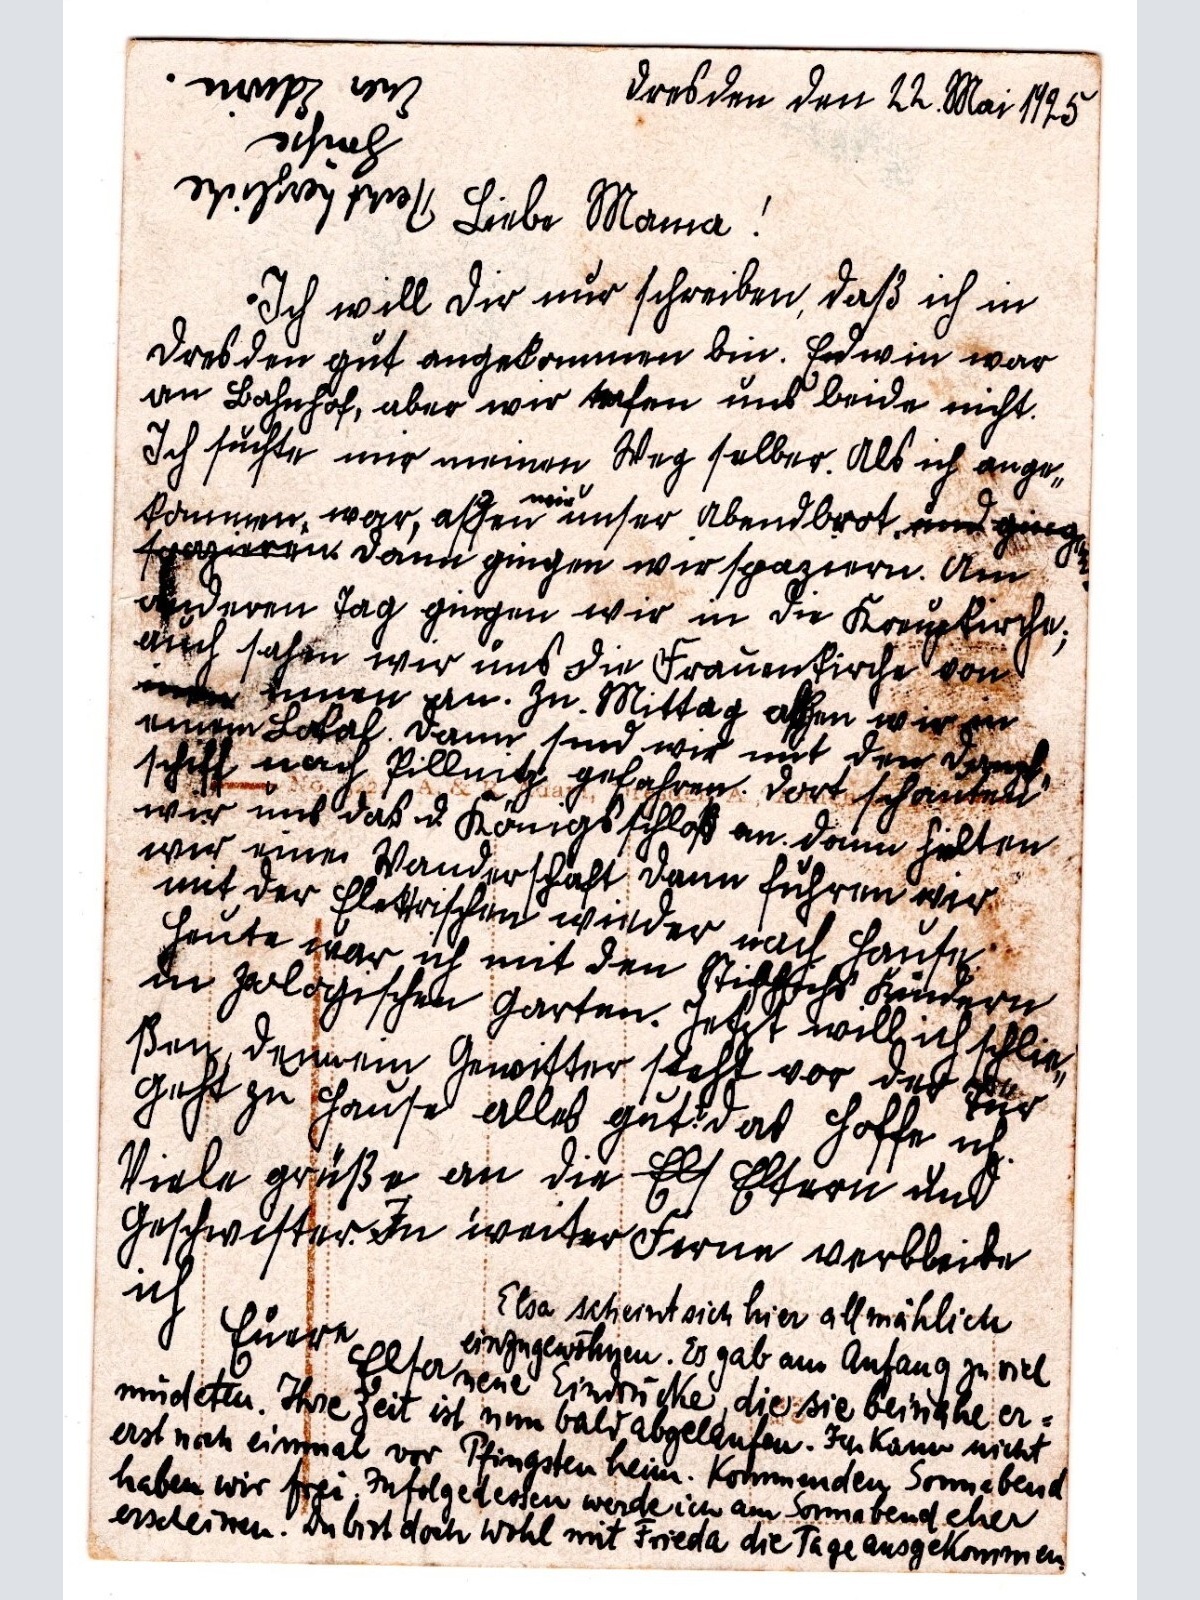 Dresden den 22. Mai 1925
Liebe Mama!
Ich will Dir nur schreiben, daß ich in
Dresden gut angekommen bin. Edwin war
an Bahnhof, aber wir trafen uns beide nicht.
Ich suchte mir meinen Weg selber. Als ich ange„
kommen, war, aßen wir unser Abendbrot. und gingen
spazieren. Dann gingen wir spaziern. Am
anderen Tag gingen wir in die Kreuzkirche;
auch sahen wir uns die Frauenkirche von
innen an. Zu Mittag aßen wir in
einem Lokal. Dann sind wir mit den Dampf„
schiff nach Pillnitz gefahren. Dort schauten
wir uns das Königsschloß an. dann hielten
wir eine Wanderschaft dann fuhren wir
mit der Elektrischen wieder nach Hause.
Heute war ich mit den Kindern
in Zoologischen Garten. Jetzt will ich schlie„
ßen, denn ein Gewitter steht vor der Tür
Geht zu Hause alles gut? das hoffe ich.
Viele grüße an die Els Eltern und
Geschwister. In weiter Ferne verbleibe
ich
Euere
Elsa
Elsa scheint sich hier allmählich
einzugewöhnen. Es gab am Anfang zu viel
neue Eindrücke, die sie beinahe er=
müdeten. Ihre Zeit ist nun bald abgelaufen. Ich kann nicht
erst noch einmal vor Pfingsten heim. Kommenden Sonnabend
haben wir frei. Infolgedessen werde ich am Sonnabend eher
erscheinen. Du bist doch wohl mit Frieda die Tage ausgekommen.
Recht herzliche
Grüße
Euer Edwin.